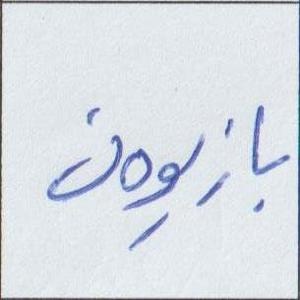 بازبودن